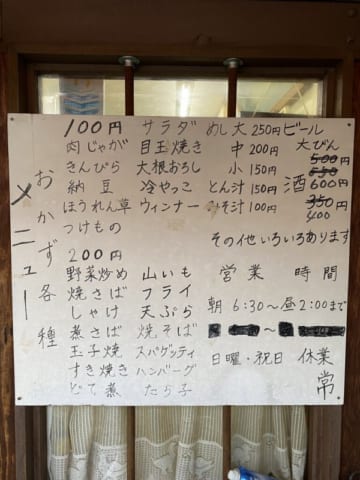 メニュー
おかず各種
100円
肉じゃが
きんぴら
納豆
ほうれん草
つけもの
サラダ
目玉焼き
大根おろし
冷やっこ
ウィンナー
200円
野菜炒め
焼さば
しゃけ
煮さば
玉子焼
すき焼き
どて煮
山いも
フライ
天ぷら
焼そば
スパゲッティ
ハンバーグ
たら子
めし大 250円
中 200円
小 150円
とん汁 150円
みそ汁 100円
ビール
大びん
500円
550
600円
酒
350
400
その他いろいろあります
営業時間
朝 6:30～昼2:00まで
～
日曜・祝日 休業
常